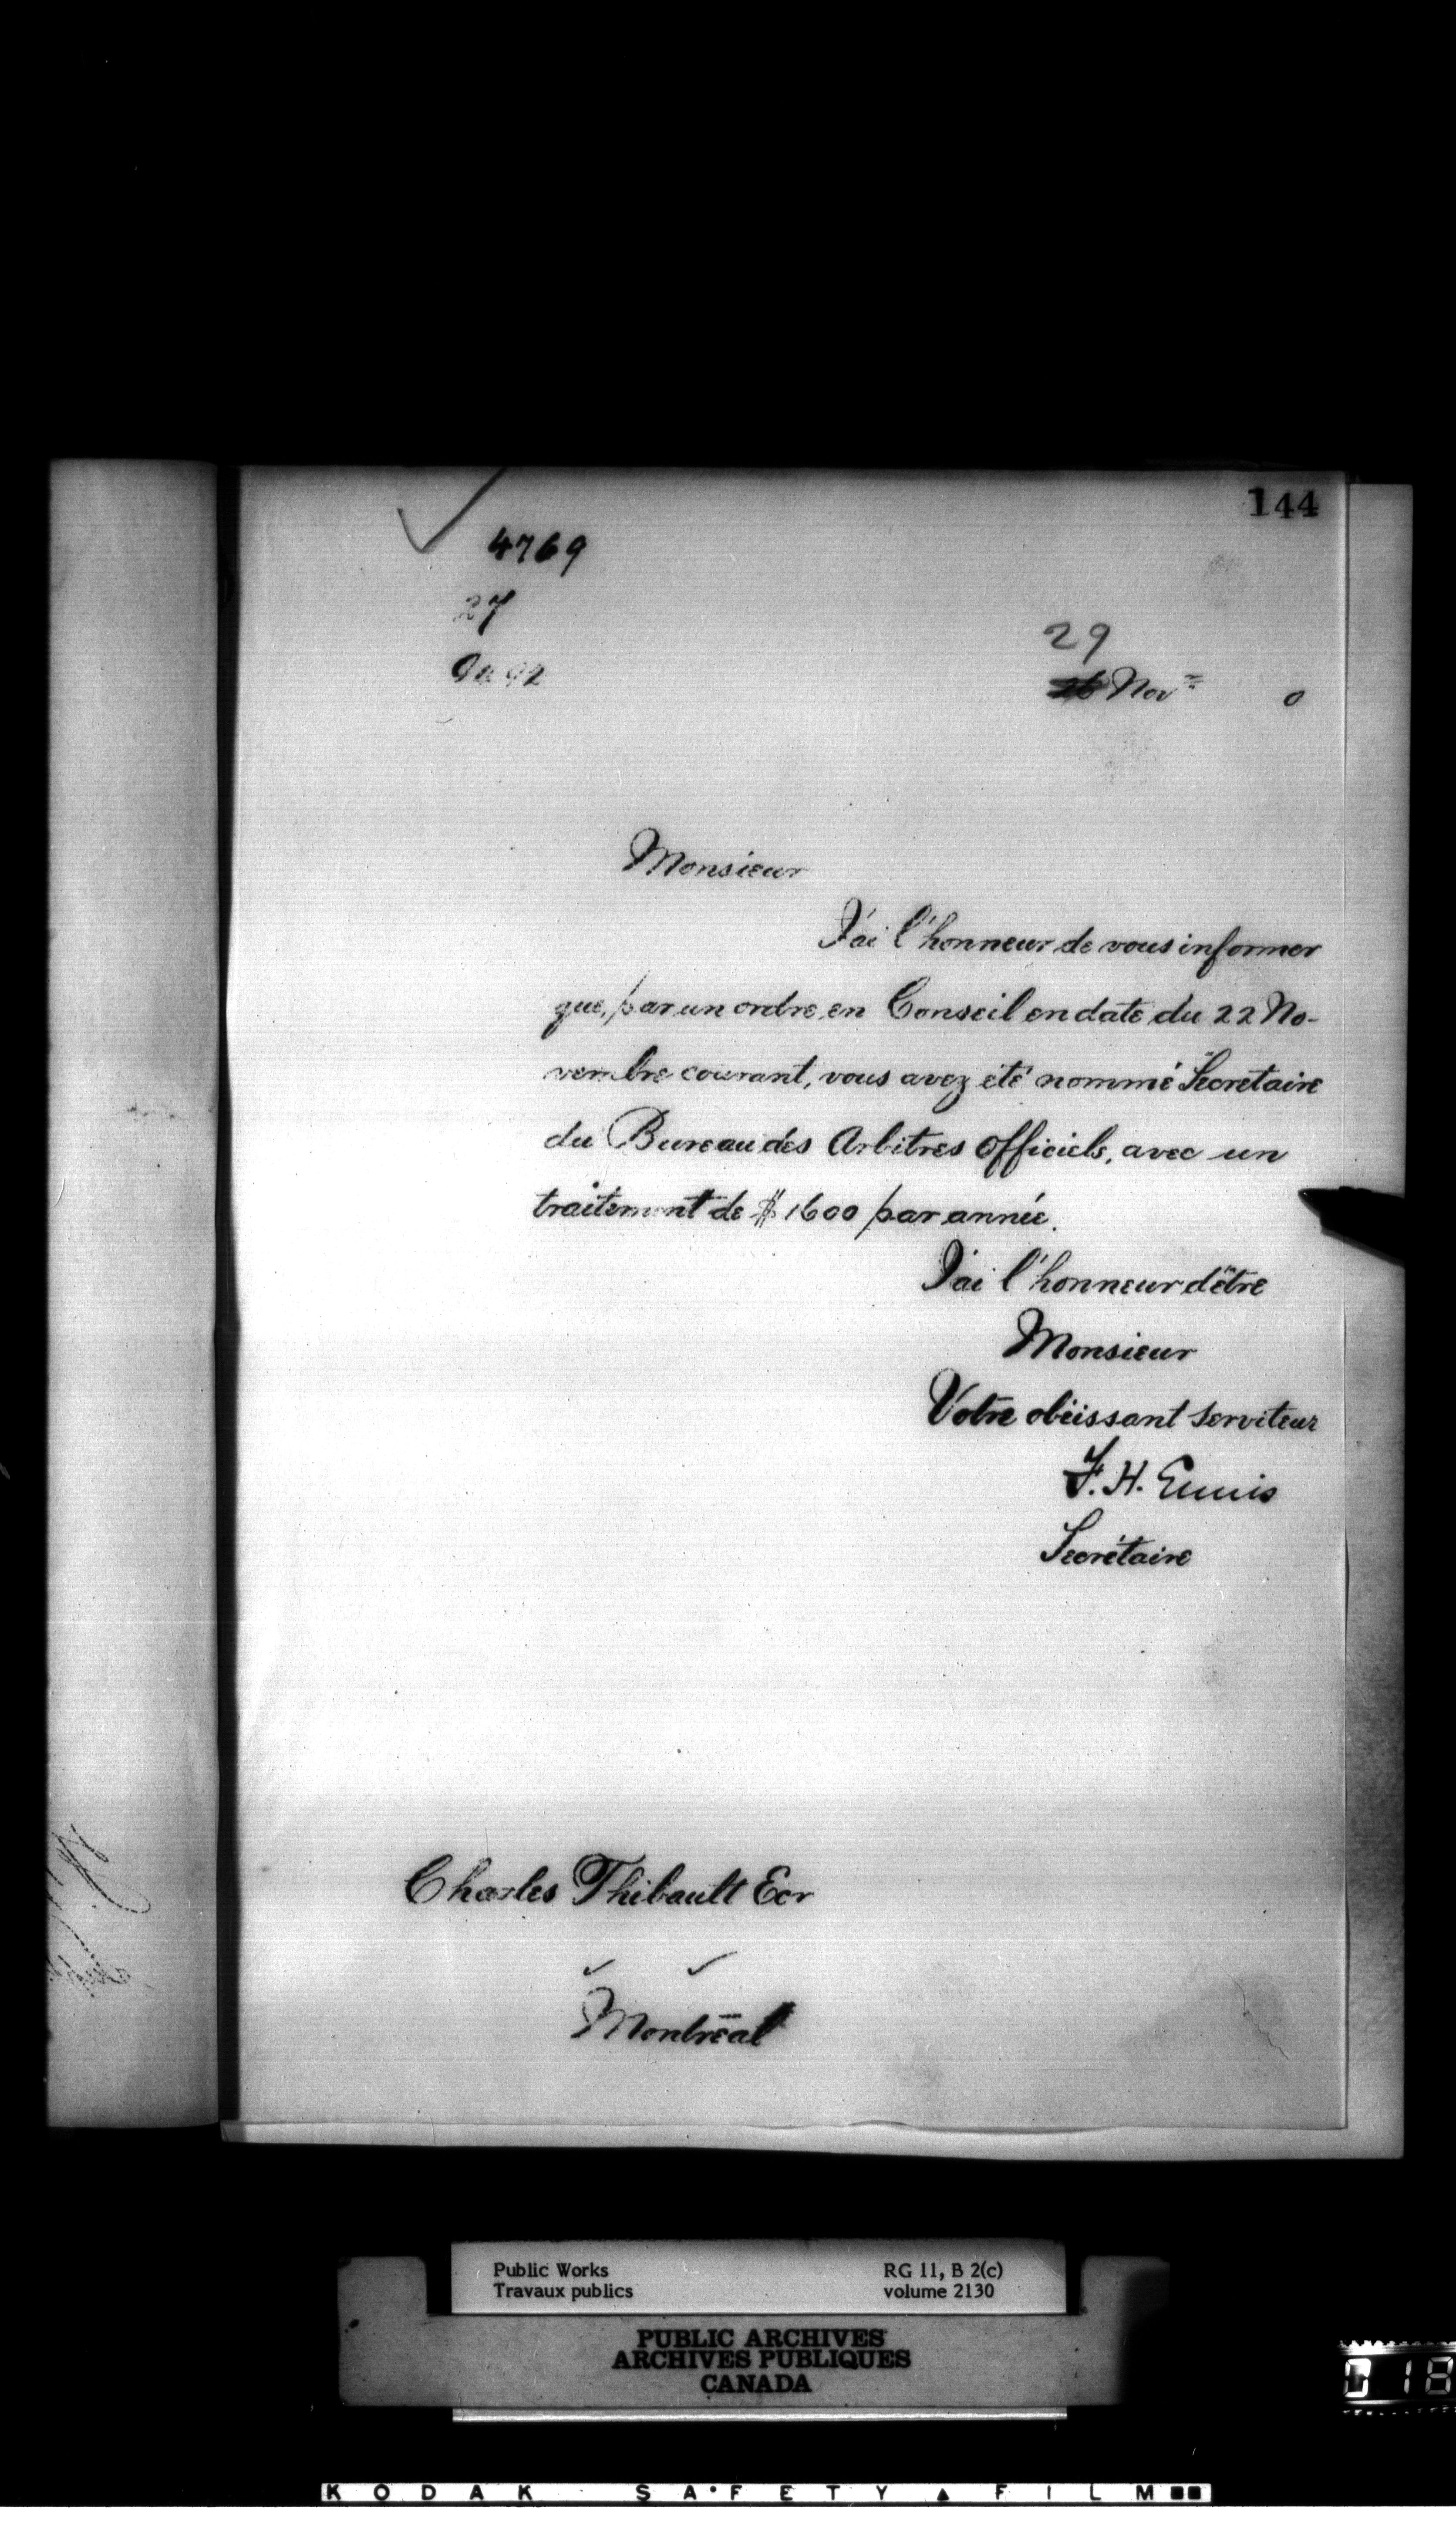 144
4769
27
29
26 Nov 0
Monsieur
J'ai l'honneur de vous informer
que, par un ordre en Conseil en date du 22 No-
vembre courant, vous avez été nommé Secrétaire
du Bureau des Arbitres Officiels, avec un
traitement de $1600 par année.
J'ai l'honneur d'être
Monsieur
Votre obéissant serviteur
F. H. Ennis
Secrétaire
Charles Thibault Ecr
Montréal
Public Works RG 11, B 2(c)
Travaux publics volume 2130
PUBLIC ARCHIVES
ARCHIVES PUBLIQUES
CANADA
018
KODAK SAFETY FILM